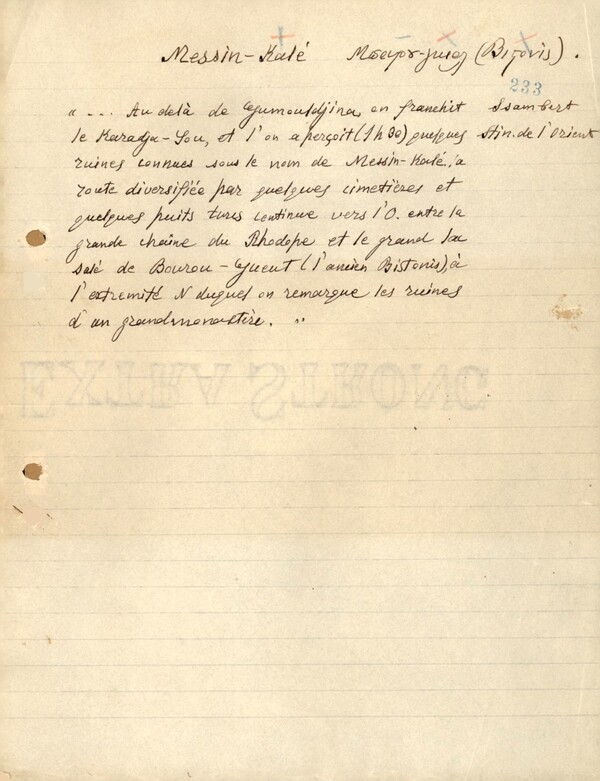 Messin-Kalé Μπουρ-γκιολ (Βιςονις).
233
"... Au delà de Gumouldjina, on franchit
le Karadja-Sou, et l'on aperçoit (1h 30) quelques
ruines connues sous le nom de Messin-Kalé. La
route diversifiée par quelques cimetières et
quelques puits turcs continue vers l'O. entre la
grande chaîne du Rhodope et le grand lac
salé de Bourou-Gueul (l'ancien Bistonis), à
l'extremité N duquel on remarque les ruines
d'un grand monastère. "
Isambert
Itin. de l'Orient
EXTRA STRONG